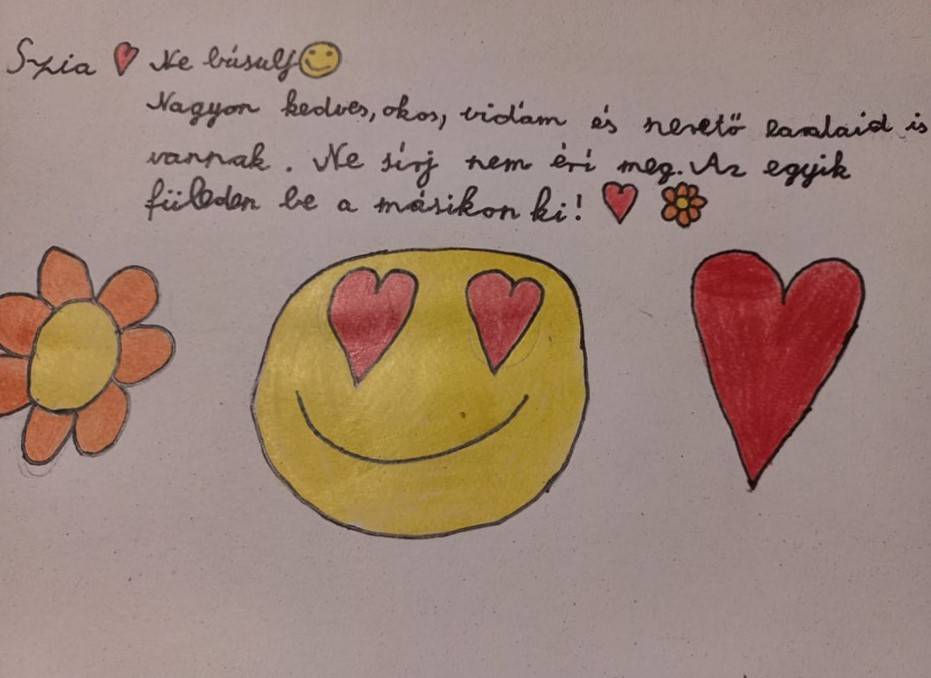 Szia Ne búsulj
Nagyon kedves, okos, vidám és nevető családaid is
vannak. Ne sírj nem éri meg. Az egyik
füleden be a másikon ki!